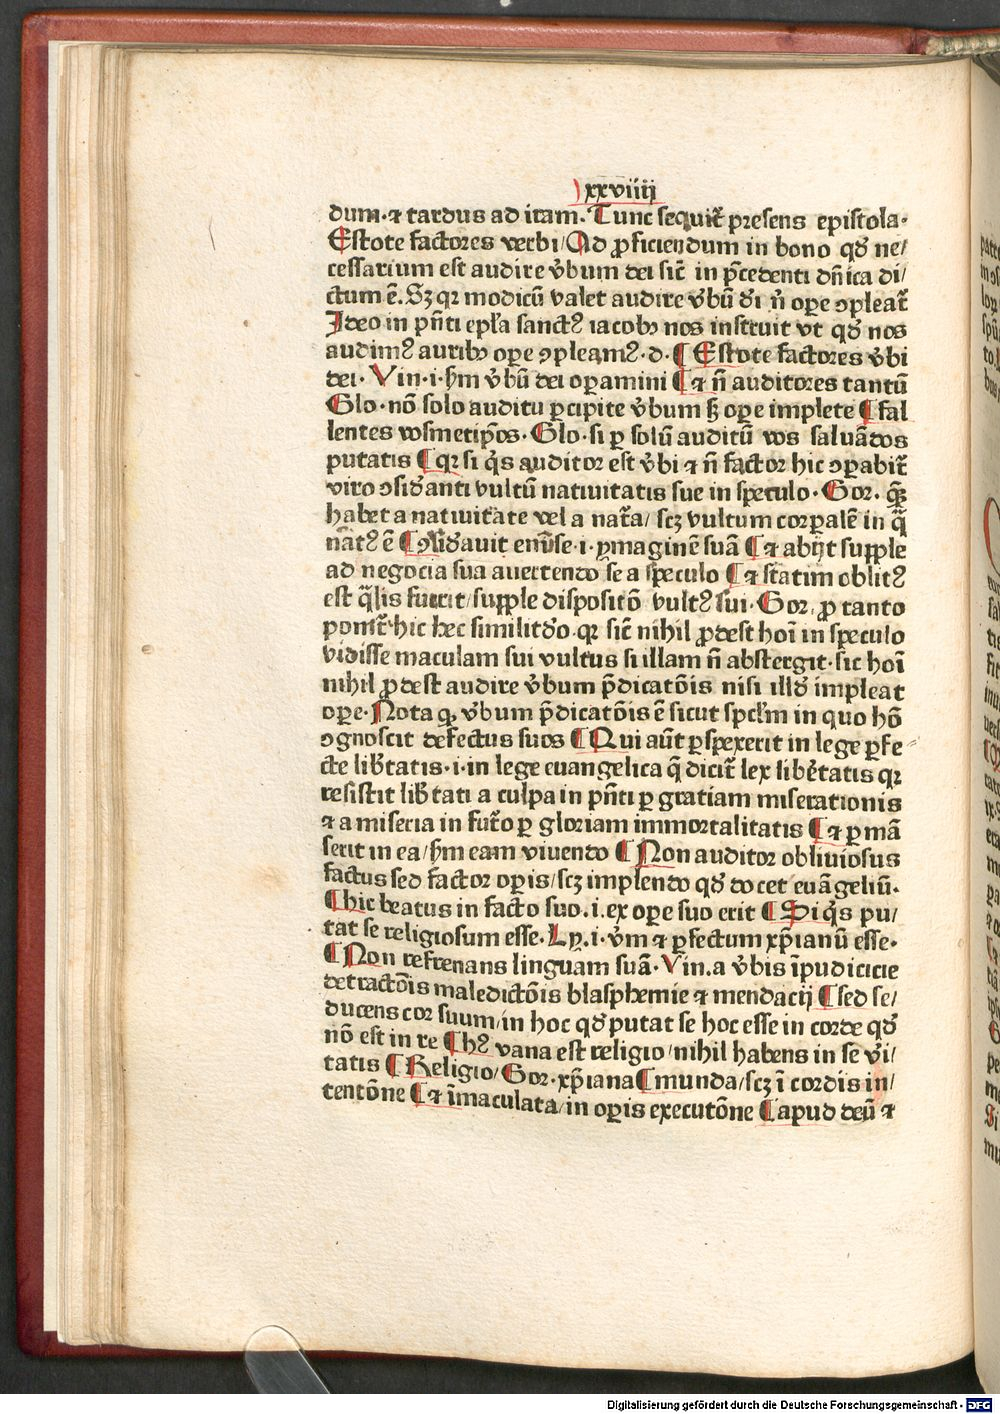 xxviiij
dum·⁊ tardus ad iram. Tunc sequit᷑ presens epistola·
Estote factores verbi/Ad ꝓficiendum in bono qđ ne/
cessarium est audire v̓bum dei sic̄ in p̄cedenti dn̄ica di/
ctum ē. Sꝫ qꝛ modicū valet audire v̓bū di̓ n̄ oꝑe ↄpleat᷑
Ideo in pn̄ti epl̓a sanctꝰ iacobꝰ nos instruit vt qđ nos
audimꝰ auribꝰ oꝑe ↄpleamꝰ·d·¶ Estote factores v̓bi
dei· Vin·i·ẜm v̓bū dei oꝑamini ¶ ⁊ n̄ auditores tantū
Glo·nō solo auditu ꝑcipite v̓bum sꝫ oꝑe implete ¶ fal
lentes vosmetip̄os·Glo·si ꝑ solū auditū vos saluādos
putatis ¶ qꝛ si q̓s auditor est v̓bi ⁊ n̄ factor hic ↄꝑabit᷑
viro ↄsid̓anti vultū natiuitatis sue in speculo·Gor. quā
habet a natiuitate vel a nat᷑a/ scꝫ vultum corꝑalē in q̄
nat᷑ꝰ ē ¶ ↄsid̓auit eni se·i·ymaginē suā ¶ ⁊ abijt supple
ad negocia sua auertendo se a speculo ¶ ⁊ statim oblitꝰ
est q̄lis fuerit/supple dispositō vultꝰ sui·Gor. ꝓ tanto
ponit᷑ hic hec similitđo·qꝛ sic̄ nihil ꝓdest hoī in speculo
vidisse maculam sui vultus si illam n̄ abstergit·sic hoī
nihil ꝓdest audire v̓bum p̄dicatōis nisi illđ impleat
oꝑe·Nota ꝙ v̓bum p̄dicatōis ē sicut spcl̓m in quo hō
ↄgnoscit defectus suos ¶ Qui aūt ꝑspexerit in lege ꝑfe⸗
cte lib̓tatis·i·in lege euangelica q̄ dicit᷑ lex lib̓tatis qꝛ
resistit lib̓tati a culpa in pn̄ti ꝑ gratiam miserationis
⁊ a miseria in fut᷑o ꝑ gloriam immortalitatis ¶ ⁊ ꝑmā
serit in ea/ẜm eam viuendo ¶ Non auditor obliuiosus
factus sed factor oꝑis/scꝫ implendo qđ docet euāgeliū.
¶ hic beatus in facto suo.i.ex oꝑe suo erit ¶ Si q̓s pu/
tat se religiosum esse. Ly.i·v̓m ⁊ ꝑfectum xp̄ianū esse·
¶ Non refrenans linguam suā·Vin.a v̓bis īpudicicie
detractōis maledictōis blasphemie ⁊ mendacij ¶ sed se/
ducens cor suum/in hoc qđ putat se hoc esse in corde qđ
nō est in re ¶ hꝰ vana est religio/nihil habens in se v̓i/
tatis ¶ Religio/Gor·xp̄iana ¶ munda/scꝫ ī cordis in/
tentōne ¶ ⁊ īmaculata/in oꝑis executōne ¶ apud deū ⁊
Digitalisierung gefördert durch die Deutsche Forschungsgemeinschaft - DFG